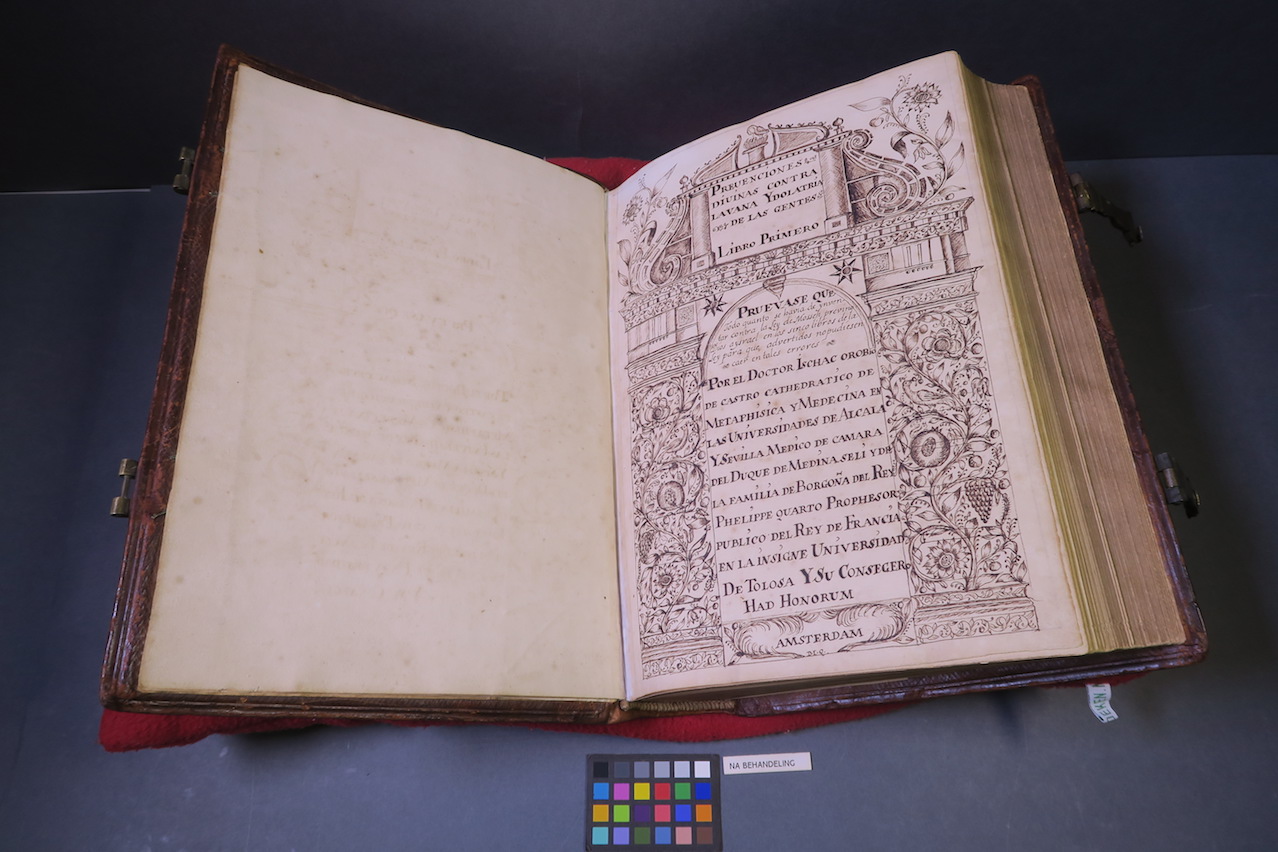 PREVENCIONES
DIVINAS CONTRA
LAVANA YDOLATRIA
DE LAS GENTES
LIBRO PRIMERO
PRUEVASE QUE
todo quanto se havia de ynven
tar contra la Ley de Mosseh previno
Dios a ysrael en los sinco libros de la
Ley para que advertidos no pudiesen
caer en tales errores
POR EL DOCTOR ISCHAC OROBIO
DE CASTRO CATHEDRATICO DE
METAPHISICA Y MEDECINA EN
LAS UNIVERSIDADES DE ALCALA
Y SEVILLA MEDICO DE CAMARA
DEL DUQUE DE MEDINA SELI Y DE
LA FAMILIA DE BORGOÑA DEL REY
PHELIPPE QUARTO PROPHESOR
PUBLICO DEL REY DE FRANCIA
EN LA INSIGNE UNIVERSIDAD
DE TOLOSA Y SU CONSEGERO
HAD HONORUM
AMSTERDAM
NA BEHANDELING